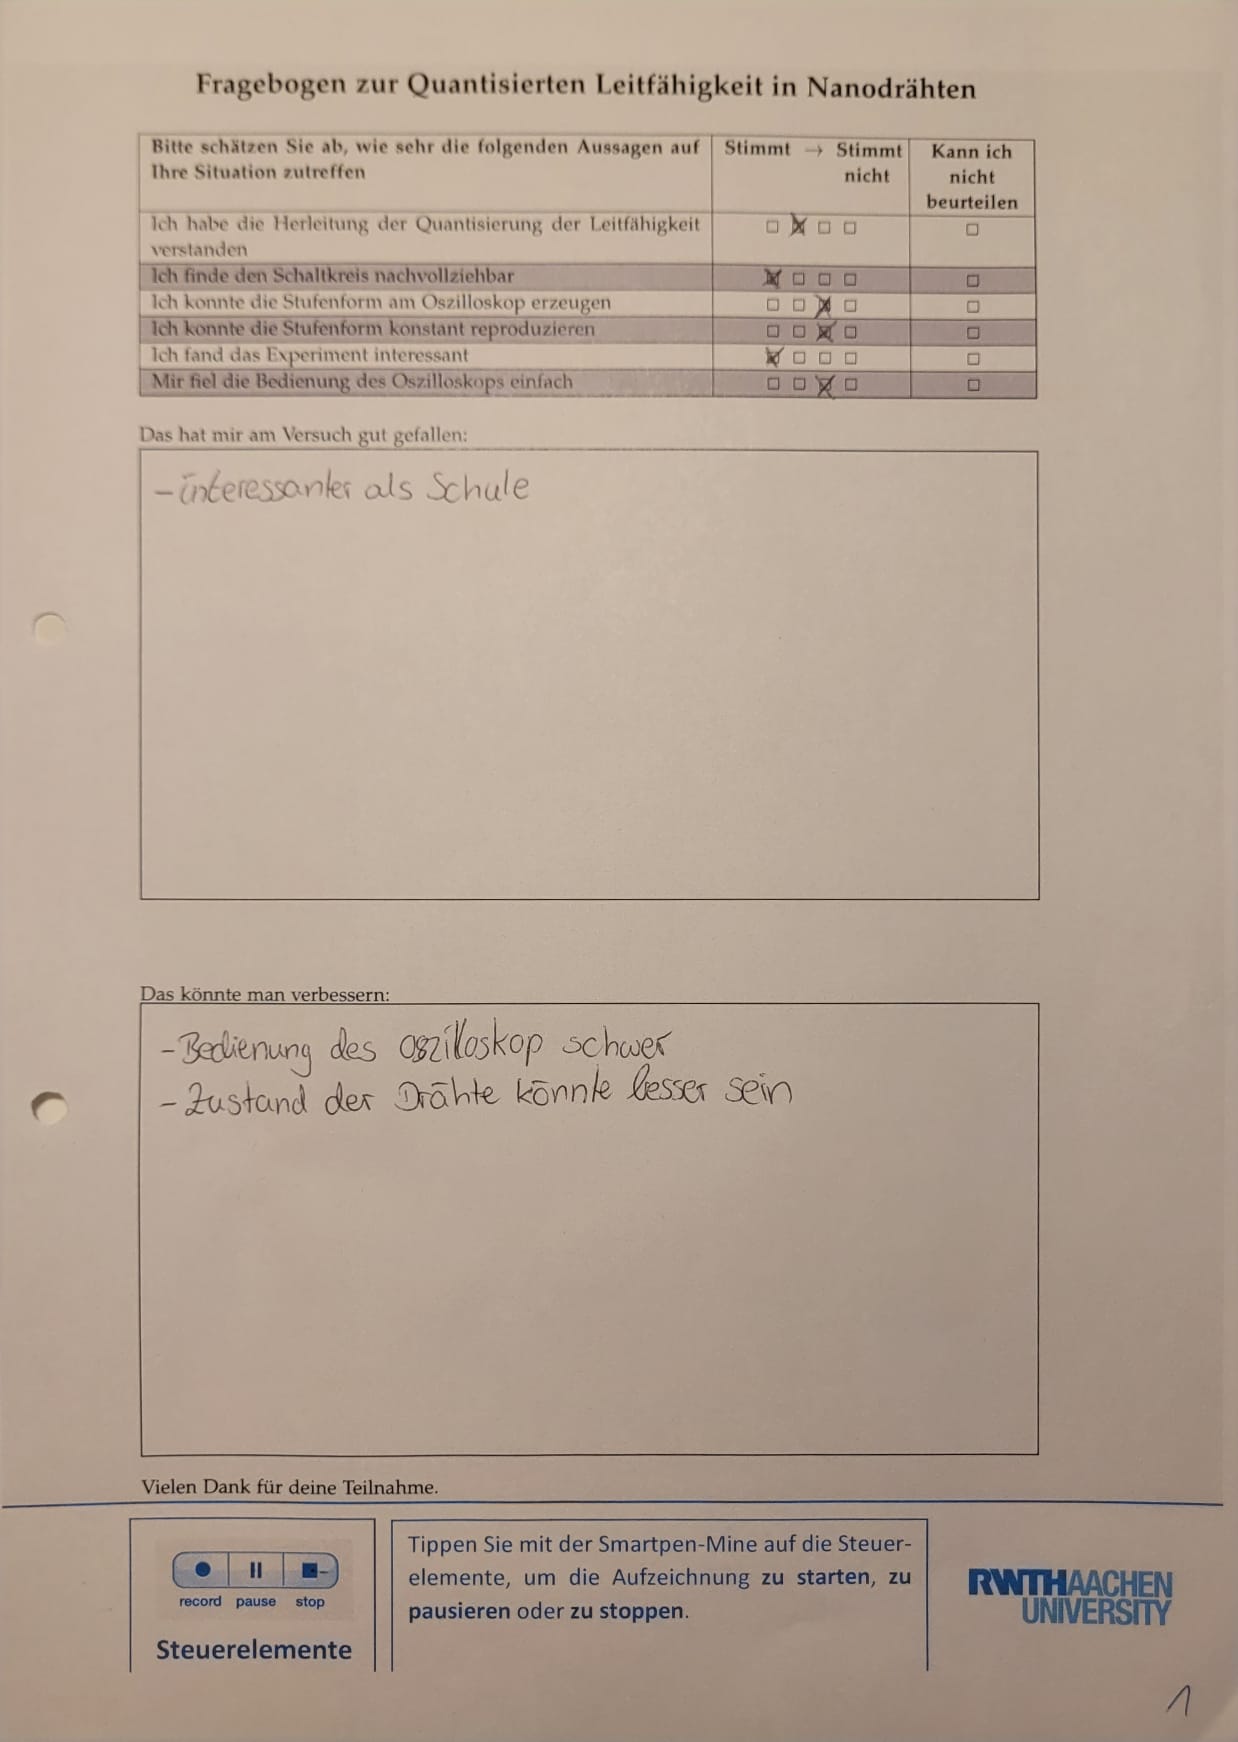 Fragebogen zur Quantisierten Leitfähigkeit in Nanodrähten
Bitte schätzen Sie ab, wie sehr die folgenden Aussagen auf
Ihre Situation zutreffen
Stimmt → Stimmt
nicht
Kann ich
nicht
beurteilen
Ich habe die Herleitung der Quantisierung der Leitfähigkeit
verstanden
Ich finde den Schaltkreis nachvollziehbar
Ich konnte die Stufenform am Oszilloskop erzeugen
Ich konnte die Stufenform konstant reproduzieren
Ich fand das Experiment interessant
Mir fiel die Bedienung des Oszilloskops einfach
Das hat mir am Versuch gut gefallen:
- interessanter als Schule
Das könnte man verbessern:
- Bedienung des Oszilloskop schwer
- Zustand der Drähte könnte besser sein
Vielen Dank für deine Teilnahme.
record pause stop
Steuerelemente
Tippen Sie mit der Smartpen-Mine auf die Steuer-
elemente, um die Aufzeichnung zu starten, zu
pausieren oder zu stoppen.
RWTHAACHEN
UNIVERSITY
1